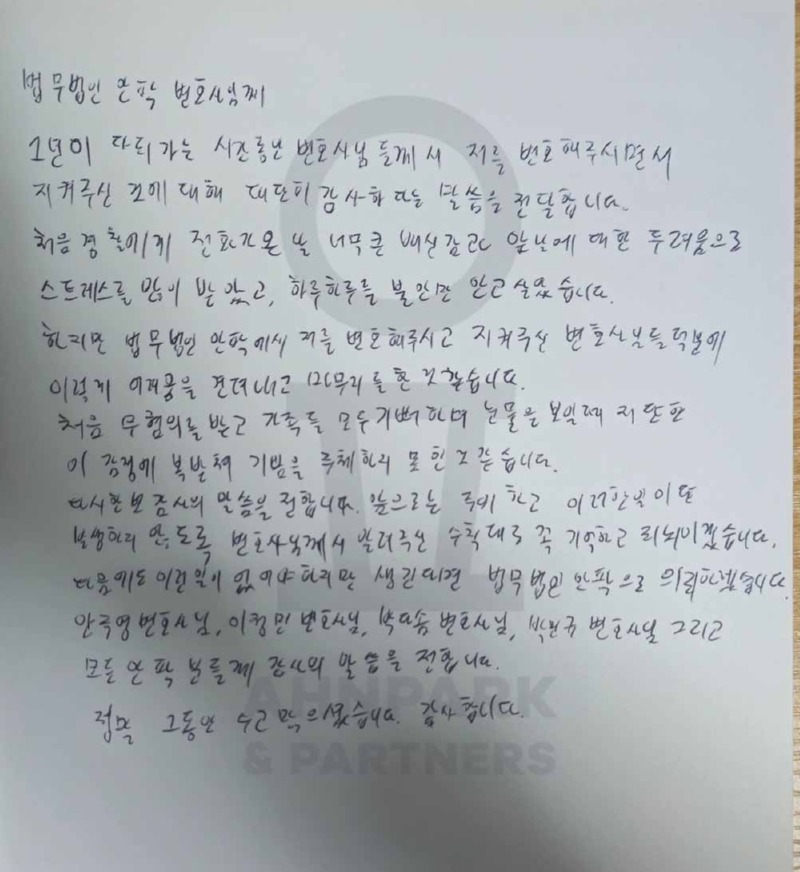 법무법인 안팍 변호사님께
1년이 다되가는 시간동안 변호사님들께서 저를 변호해주시면서
지켜주신 것에 대해 대단히 감사하다는 말씀을 전달합니다.
처음 경찰에게 전화가 온 날 너무 큰 배신감과 앞날에 대한 두려움으로
스트레스를 많이 받았고, 하루하루를 불안만 안고 살았습니다.
하지만 법무법인 안팍에서 저를 변호해주시고 지켜주신 변호사님들 덕분에
이렇게 어려움을 견뎌내고 마무리를 한 것 같습니다.
처음 무혐의를 받고 가족들 모두 기뻐하며 눈물을 보일때 저 또한
이 감정에 복받쳐 기쁨을 주체하지 못한 것 같습니다.
다시한번 감사의 말씀을 전합니다. 앞으로는 하고 이러한 일이 또
발생하지 않도록 변호사님께서 알려주신 수칙대로 꼭 기억하고 되뇌이겠습니다.
다음에도 이런일이 없어야하지만 생긴다면 법무법인 안팍으로 의뢰하겠습니다
안주영변호사님, 이청민 변호사님, 박다솜 변호사님, 변호사님 그리고
모든 안팍 분들께 감사의 말씀을 전합니다.
정말 그동안 수고 많으셨습니다. 감사합니다.
AHNPARK
& PARTNERS